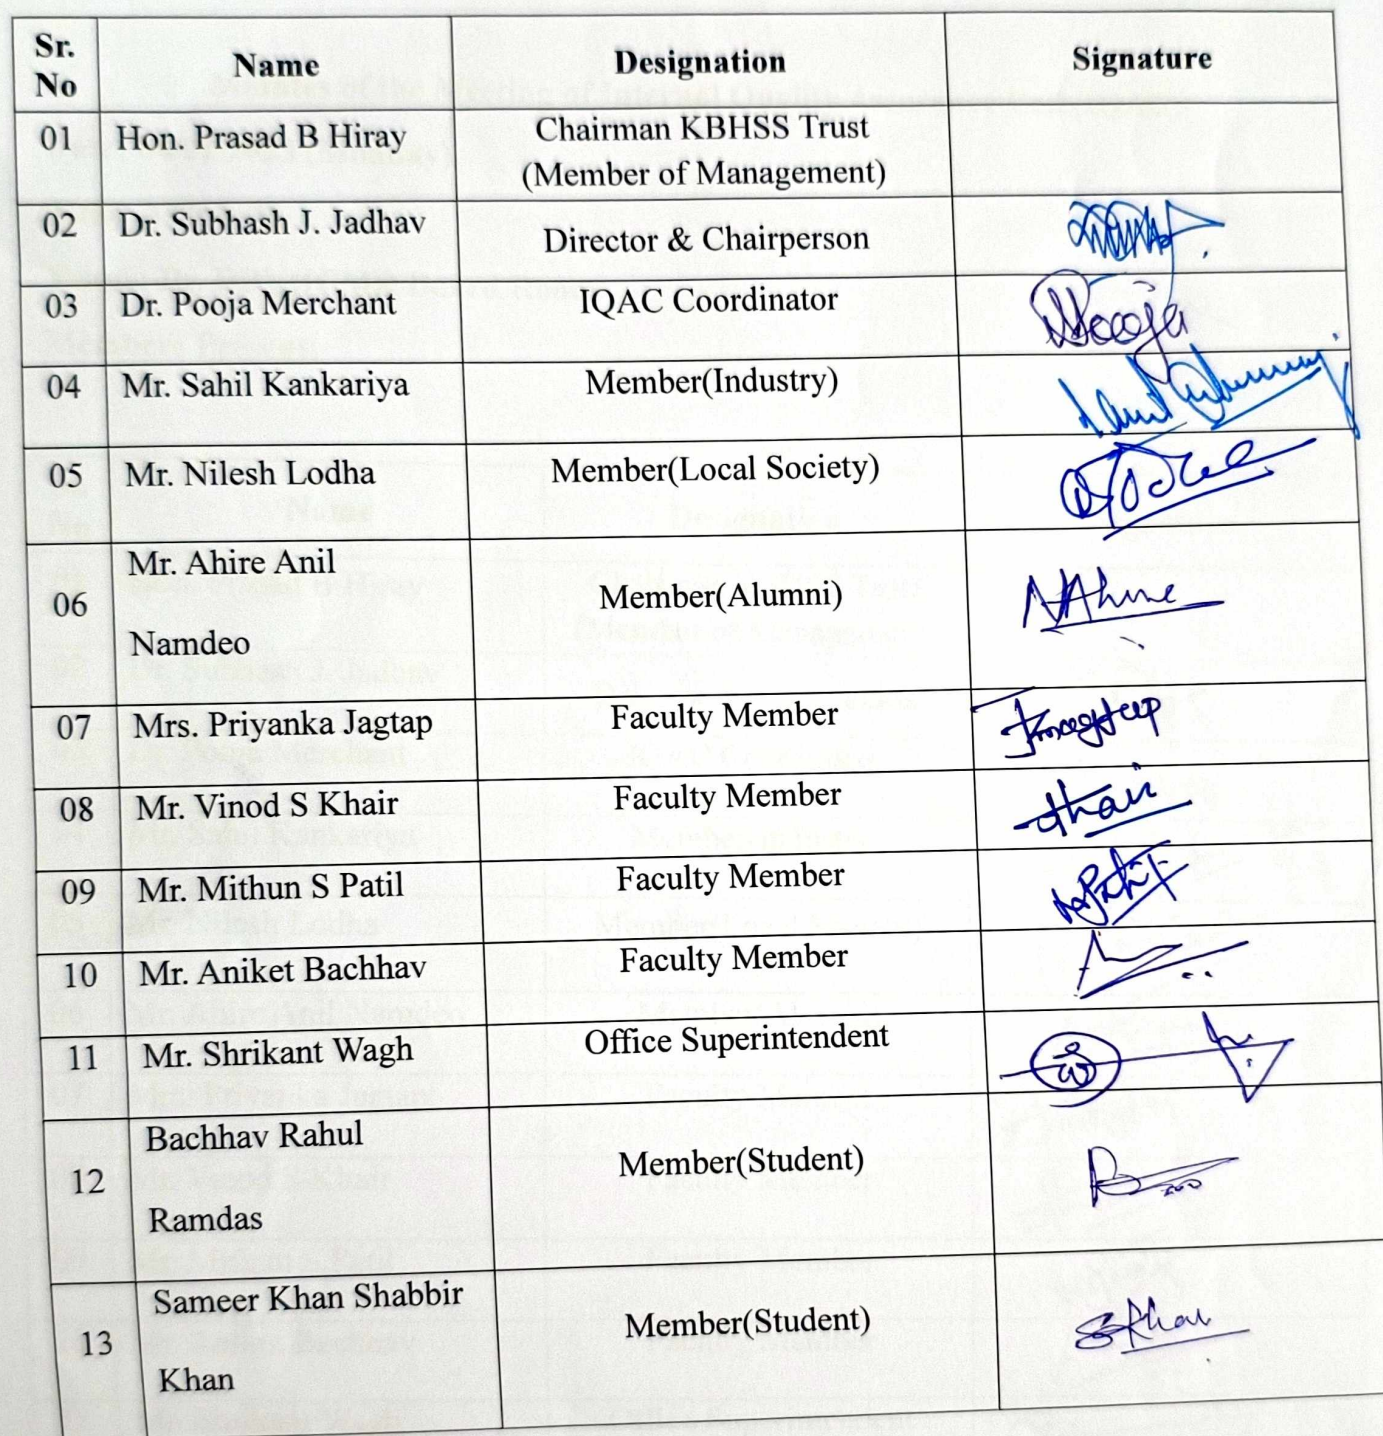 Sr. No Name Designation Signature
01 Hon. Prasad B Hiray Chairman KBHSS Trust
(Member of Management)
02 Dr. Subhash J. Jadhav Director & Chairperson
03 Dr. Pooja Merchant IQAC Coordinator Pooja
04 Mr. Sahil Kankariya Member(Industry)
05 Mr. Nilesh Lodha Member(Local Society)
06 Mr. Ahire Anil Member(Alumni) NAhire
Namdeo
07 Mrs. Priyanka Jagtap Faculty Member
08 Mr. Vinod S Khair Faculty Member
09 Mr. Mithun S Patil Faculty Member
10 Mr. Aniket Bachhav Faculty Member
11 Mr. Shrikant Wagh Office Superintendent
12 Bachhav Rahul Member(Student)
Ramdas
13 Sameer Khan Shabbir Member(Student) SKhan
Khan